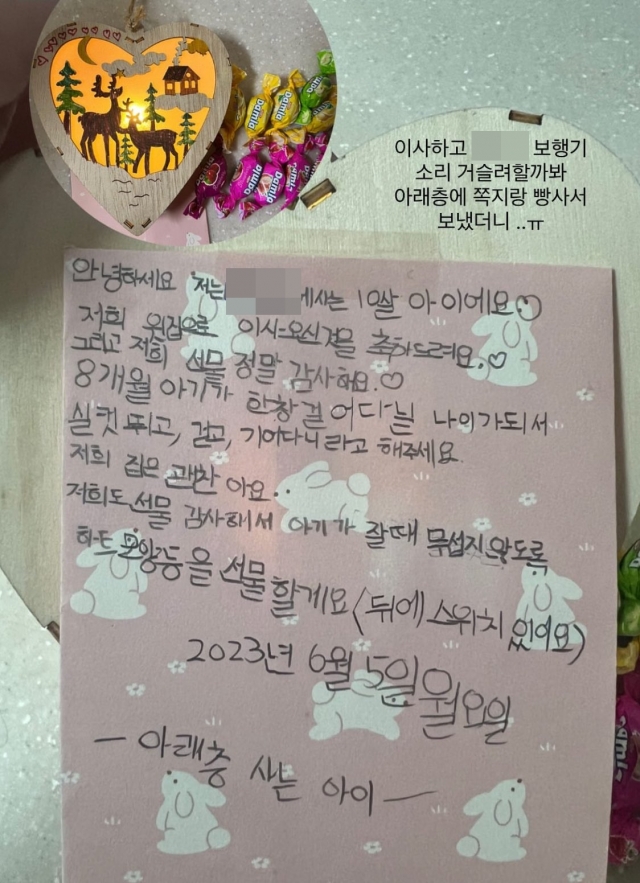 이사하고 보행기
소리 거슬려할까봐
아래층에 쪽지랑 빵사서
보냈더니 ..ㅠ
안녕하세요 저는 에사는 10살 아이에요
저희 윗집으로 이사오신걸 축하드려요.♡
그리고 저희 선물 정말 감사해요.♡
8개월 아기가 한창 걸어다닐 나이가되서
실컷 뛰고, 걷고, 기어다니라고 해주세요.
저희 집은 괜찬아요.
저희도 선물 감사해서 아기가 잘때 무섭지 않도록
하트모양등을 선물할게요(뒤에 스위치 있어요)
2023년 6월 5일 월요일
― 아래층 사는 아이 ―
damla
damla
damla
damla
damla